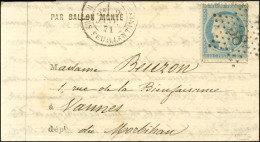 PAR BALLON MONTÉ
71
Madame Beuzon
1, rue de la Bienfaisance
à
Vannes
dépt. du Morbihan